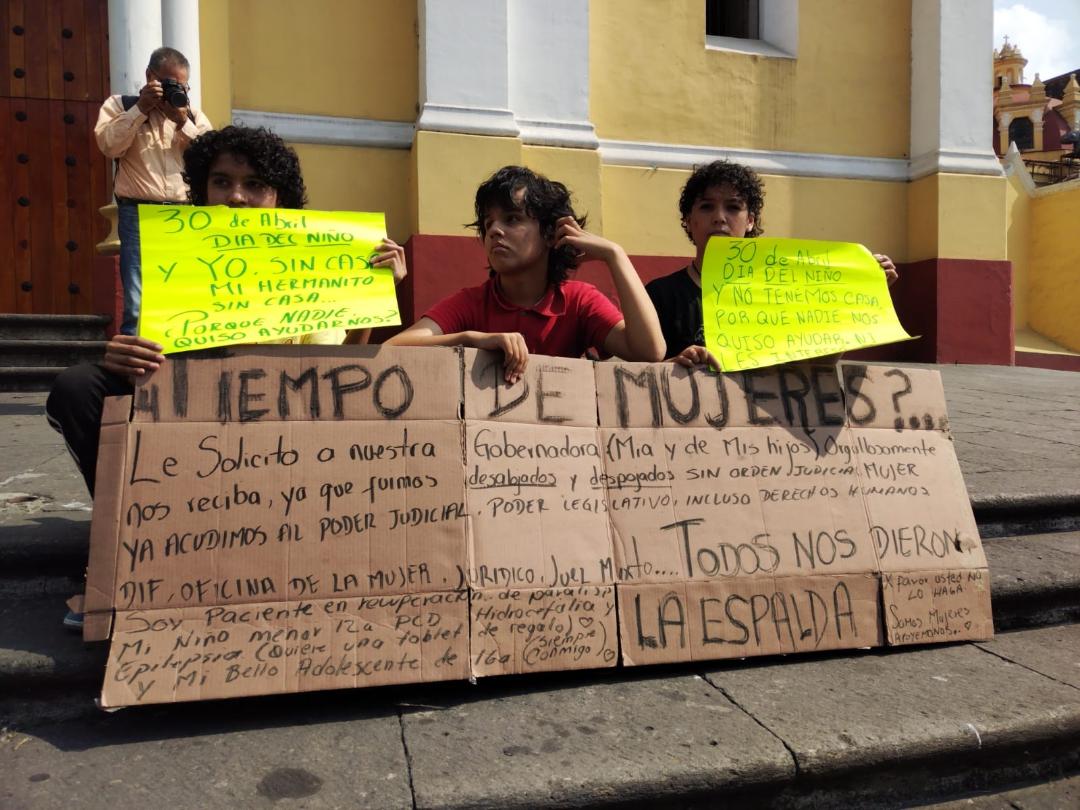 30 de Abril
DIA DEL NIÑO
y YO, SIN CASA
MI HERMANITO
SIN CASA...
¿PORQUE NADIE
QUISO AYUDARNOS?
30 de Abril
DIA DEL NIÑO
Y NO TENEMOS CASA
POR QUE NADIE NOS
QUISO AYUDAR. NI
ES INTERÉS
¿TIEMPO DE MUJERES?...
Le Solicito a nuestra Gobernadora (Mia y de Mis hijos) Orgullosamente
nos reciba, ya que fuimos desalojados y despojados SIN ORDEN JUDICIAL MUJER
YA ACUDIMOS AL PODER JUDICIAL, PODER LEGISLATIVO, INCLUSO DERECHOS HUMANOS
DIF, OFICINA DE LA MUJER, JURIDICO, Juez Mixto.... TODOS NOS DIERON
LA ESPALDA
Soy Paciente en recuperación de paralisis
Mi Niño menor 12a PCD Hidrocefalia y
Epilepsia (Quiere una tablet de regalo) ♡
y Mi Bello Adolescente de 16a (Siempre Conmigo) ♡
X favor usted NO
LO HAGA
Somos Mujeres
APOYEMONOS..♡